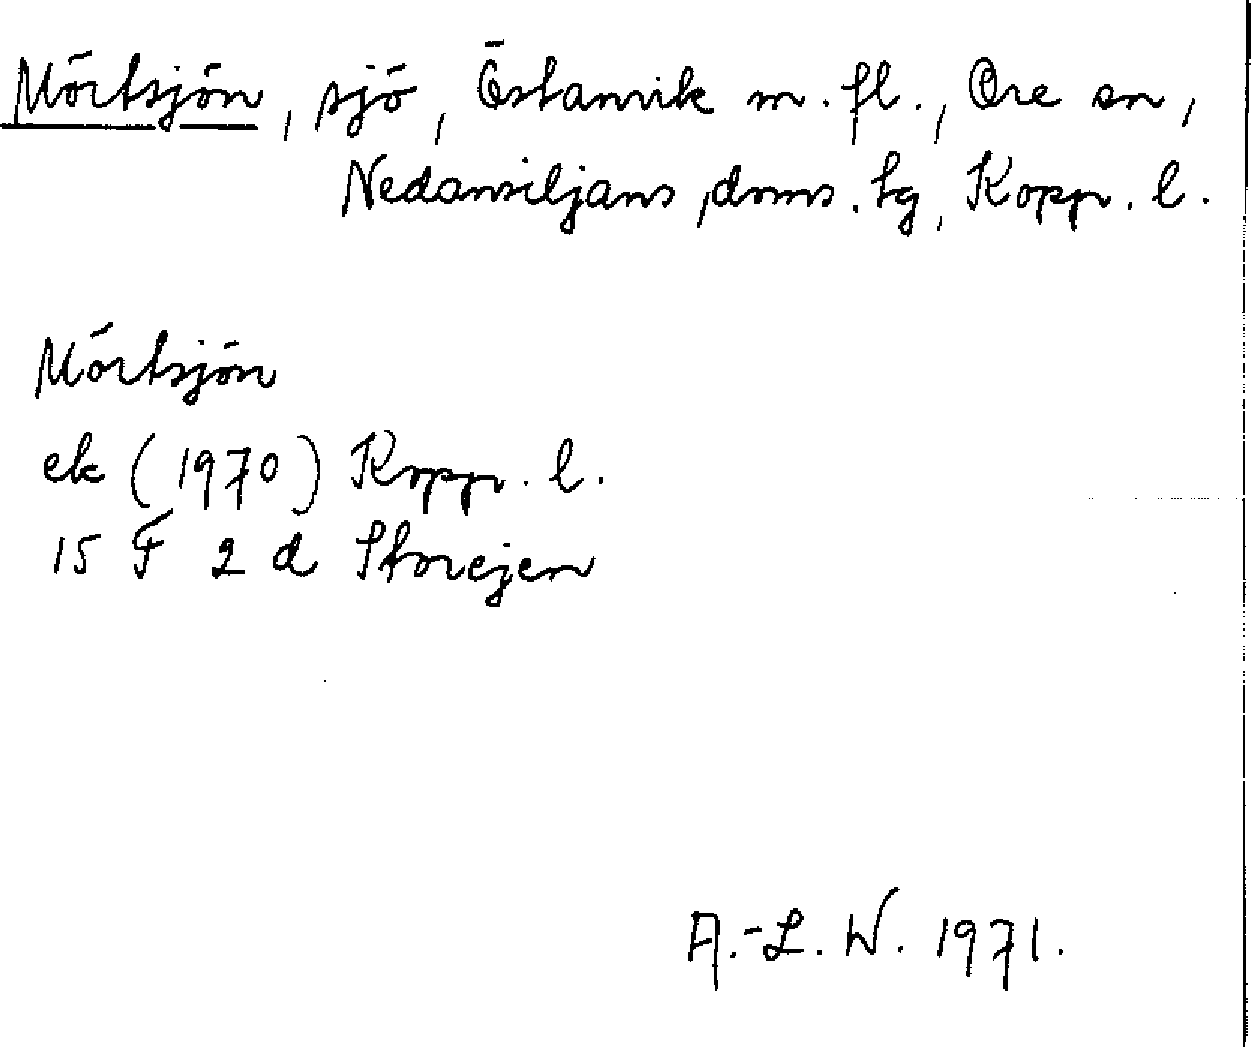 Mörtsjön, sjö, Östanvik m. fl., Ore sn,
Nedansiljans doms. tg, Kopp. l.
Mörtsjön
ek (1970) Kopp. l.
15 F 2 d Storejen
A.-L. W. 1971.